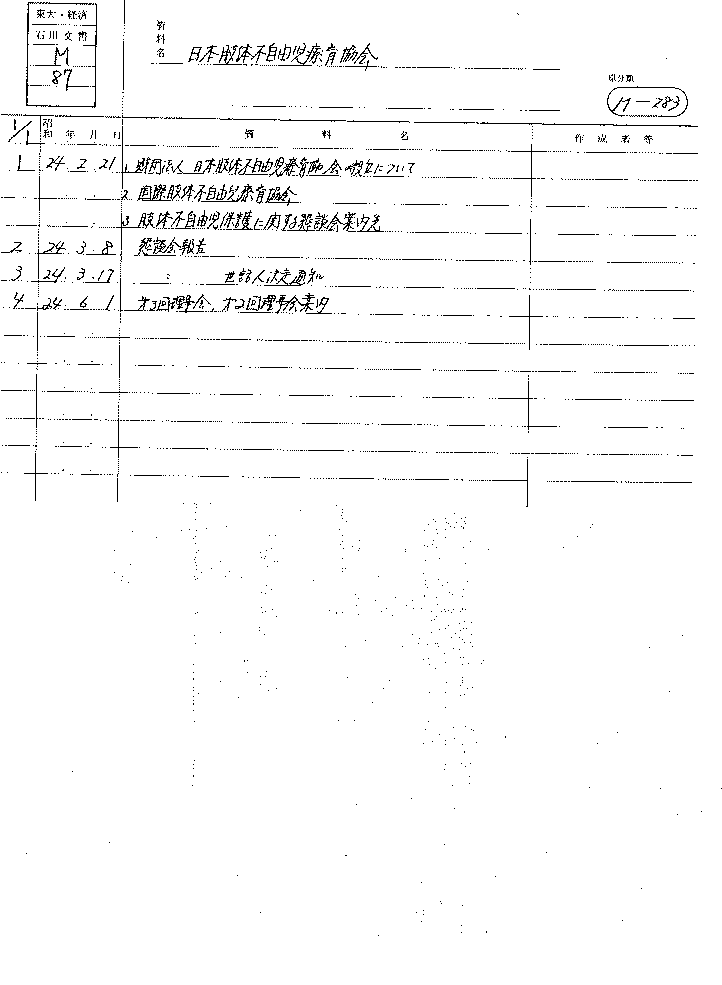 東大・経済
石川文書
M
87
資料名 日本肢体不自由児療育協会
原分類
M-283
1/1 昭和 年 月 日 資料名 作成者等
1 24 2 21 1. 財団法人 日本肢体不自由児療育協会の設立について
2 国際肢体不自由児療育協会
3 肢体不自由児保護に関する懇談会案内先
2 24 3 8 懇談会報告
3 24 3 17 〃 世話人決定通知
4 24 6 1 才3回理事会、才2回理事会案内